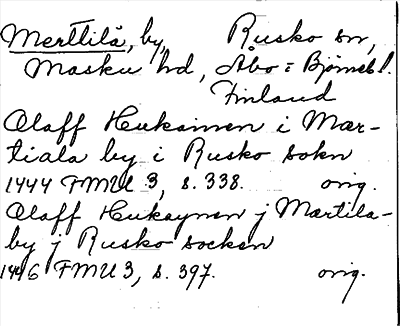 Merttilä, by, Rusko sn,
Masku hd, Åbo = Björneb l.
Finland
Olaff Hukainen i Mar-
tiala by i Rusko sokn
1444 FMU 3, s. 338. orig.
Olaff Hukaynen j Martila-
by j Rusko socken
1446 FMU 3, s. 397. orig.